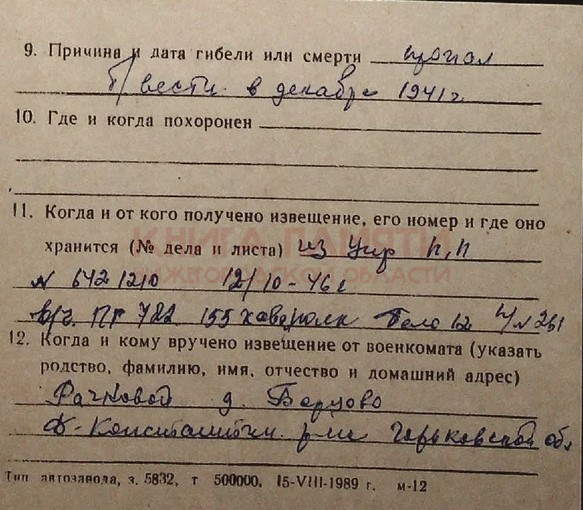 9. Причина и дата гибели или смерти пропал
б/вести в декабре 1941 г.
10. Где и когда похоронен
11. Когда и от кого получено извещение, его номер и где оно
хранится (№ дела и листа) из Упр
КНИГА ПАМЯТИ
НИЖЕГОРОДСКОЙ ОБЛАСТИ
N 6421210 12/10-46г
в/ч. 782 155 кав.полк Дело 12 № 261
12. Когда и кому вручено извещение от военкомата (указать
родство, фамилию, имя, отчество и домашний адрес)
Рачковой д. Борцово
Д-Константин. р-на Горьковской обл
Тип автозавода, з. 5832, т 500000, 15-VIII-1989 г. м-12